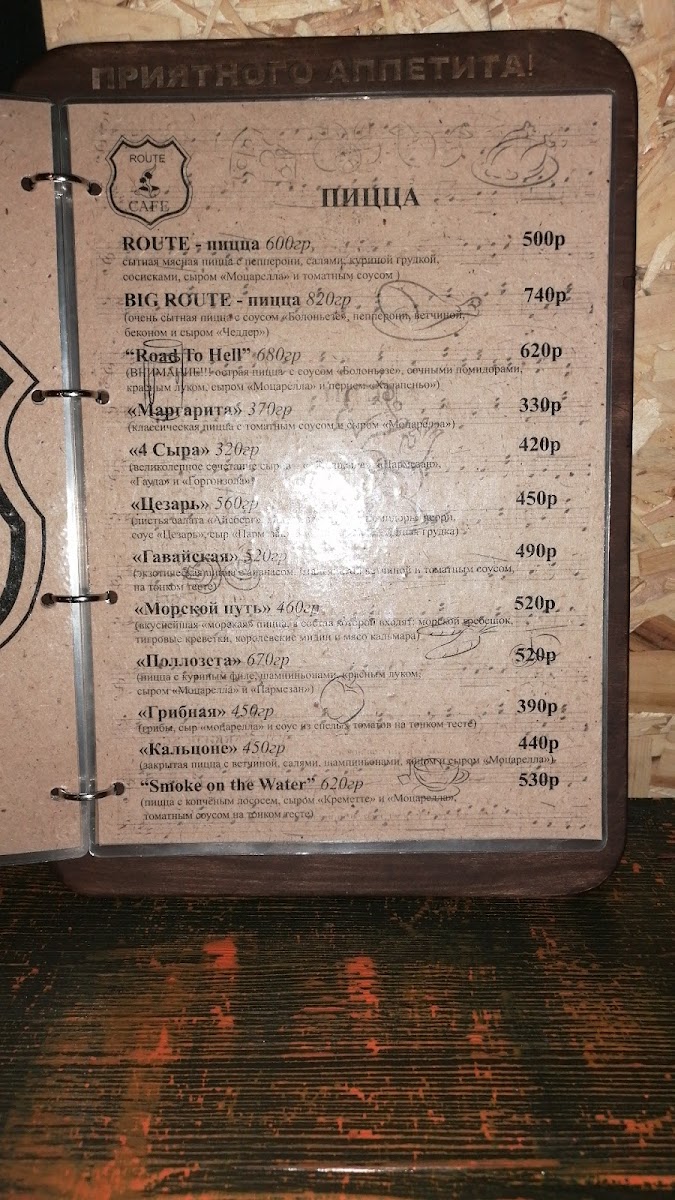 ПРИЯТНОГО АППЕТИТА!
ROUTE
CAFE
ПИЦЦА
ROUTE - пицца 600гр, 500р
сытная мясная пицца с пепперони, салями, куриной грудкой,
сосисками, сыром «Моцарелла» и томатным соусом )
BIG ROUTE - пицца 820гр 740р
(очень сытная пицца с соусом «Болоньезе», пепперони, ветчиной,
беконом и сыром «Чеддер»)
“Road To Hell” 680гр 620р
(ВНИМАНИЕ!!! острая пицца с соусом «Болоньезе», сочными помидорами,
красным луком, сыром «Моцарелла» и перцем «Халапеньо»)
«Маргарита» 370гр 330р
(классическая пицца с томатным соусом и сыром «Моцарелла»)
«4 Сыра» 320гр 420р
(великолепное сочетание сыра
«Гауда» и «Горгонзола»
«Цезарь» 560гр 450р
(листья салата «Айсберг» черри,
соус «Цезарь», сыр «Парм грудка)
«Гавайская» 520гр 490р
(экзотическая пицца с ананасом, и томатным соусом,
на тонком тесте)
«Морской путь» 460гр 520р
(вкуснейшая «морская» пицца, в состав которой входят: морской гребешок,
тигровые креветки, королевские мидии и мясо кальмара)
«Поллозета» 670гр 520р
(пицца с куриным филе, шампиньонами, красным луком,
сыром «Моцарелла» и «Пармезан»)
«Грибная» 450гр 390р
(грибы, сыр «моцарелла» и соус из спелых томатов на тонком тесте)
«Кальцоне» 450гр 440р
(закрытая пицца с ветчиной, салями, шампиньонами, яйцом и сыром «Моцарелла»)
“Smoke on the Water” 620гр 530р
(пицца с копченым лососем, сыром «Креметте» и «Моцарелла»,
томатным соусом на тонком тесте)